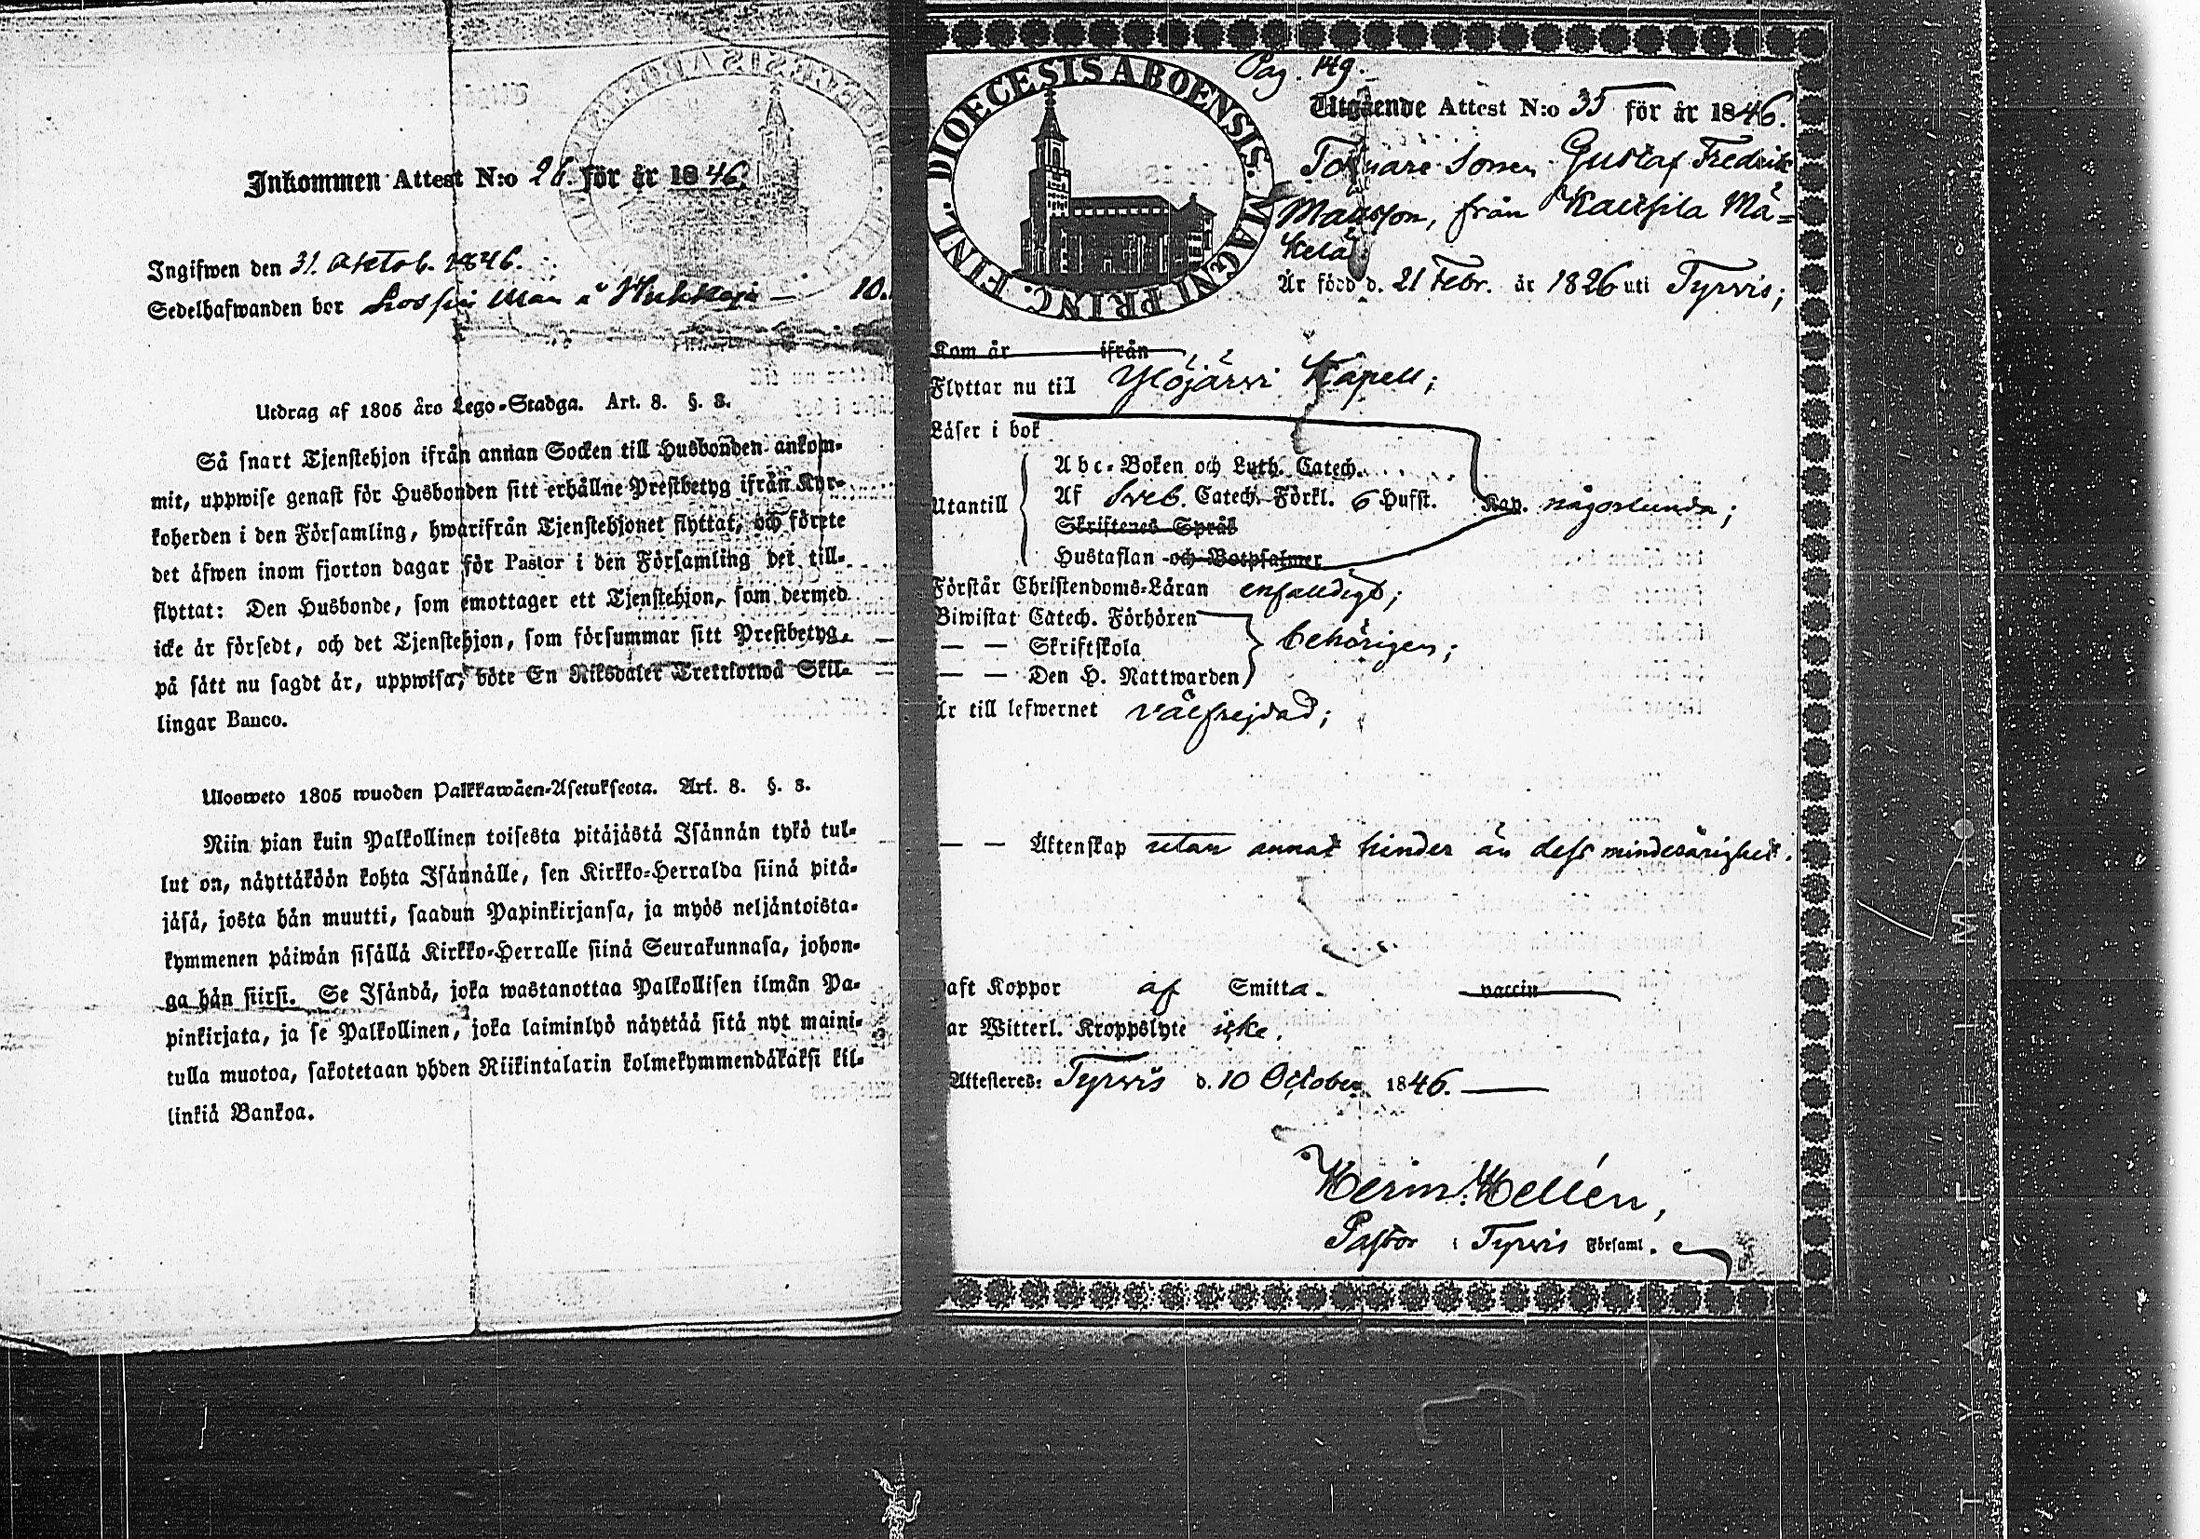 Inkommen Attest N:o 26. för år 1846.
Ingifwen den 31. Oktob. 1846.
Sedelhafwanden bor man å 10.
Utdrag af 1805 års Lego-Stadga. Art. 8. §. 3.
Så snart Tjenstehjon ifrån annan Socken till Husbonden ankom-
mit, uppwise genast för Husbonden sitt erhållne Prestbetyg ifrån Kyr-
koherden i den Församling, hwarifrån Tjenstehjonet flyttat, och förete
det äfwen inom fjorton dagar för Pastor i den Församling det till-
flyttat: Den Husbonde, som emottager ett Tjenstehjon, som dermed
icke är försedt, och det Tjenstehjon, som försummar sitt Prestbetyg,
på sätt nu sagdt är, uppwisa, böte En Riksdaler Trettiotwå Skil-
lingar Banco.
Ulosweto 1805 wuoden Palkkawäen-Asetuksesta. Art. 8. §. 3.
Niin pian kuin Palkollinen toisesta pitäjästä Isännän tykö tul-
lut on, näyttäköön kohta Isännälle, sen Kirkko-Herralda siinä pitä-
jäsä, josta hän muutti, saadun Papinkirjansa, ja myös neljäntoista-
kymmenen päiwän sisällä Kirkko-Herralle siinä Seurakunnasa, johon-
ga hän siirsi. Se Isändä, joka wastanottaa Palkollisen ilmän Pa-
pinkirjata, ja se Palkollinen, joka laiminlyö näyttää sitä nyt maini-
tulla muotoa, sakotetaan yhden Riikintalarin kolmekymmendäkaksi kil-
linkiä Bankoa.
DIOECESIS ABOENSIS. MAGNI PRINC. FINL.
Pag. 149.
Utgående Attest N:o 35 för år 1846.
Torpare Sonen Gustaf Fredrik
Mattsson, från Kaukila Mä=
kelä
Är född d. 21 Febr. år 1826 uti Tyrvis;
Kom år ifrån
Flyttar nu till Ylöjärvi Kapell;
Läser i bok
Abc-Boken och Luth. Catech.
Utantill Af Sveb. Catech. Förkl. 6 Hufst. Kap. någorlunda;
Skriftenes Språk
Hustaflan och Botpsalmer
Förstår Christendoms-Läran enfaldigt;
Biwistat Catech. Förhören
— — Skriftskola behörigen;
— — Den H. Nattwarden
är till lefwernet välfrejdad;
— — Äktenskap utan annat hinder än dess minderårighet.
aft Koppor af Smitta. vaccin
ar Witterl. Kroppslyte icke.
Attesteres: Tyrvis d. 10 October 1846.
Herm. Hellén,
Pastor i Tyrvis Församl.